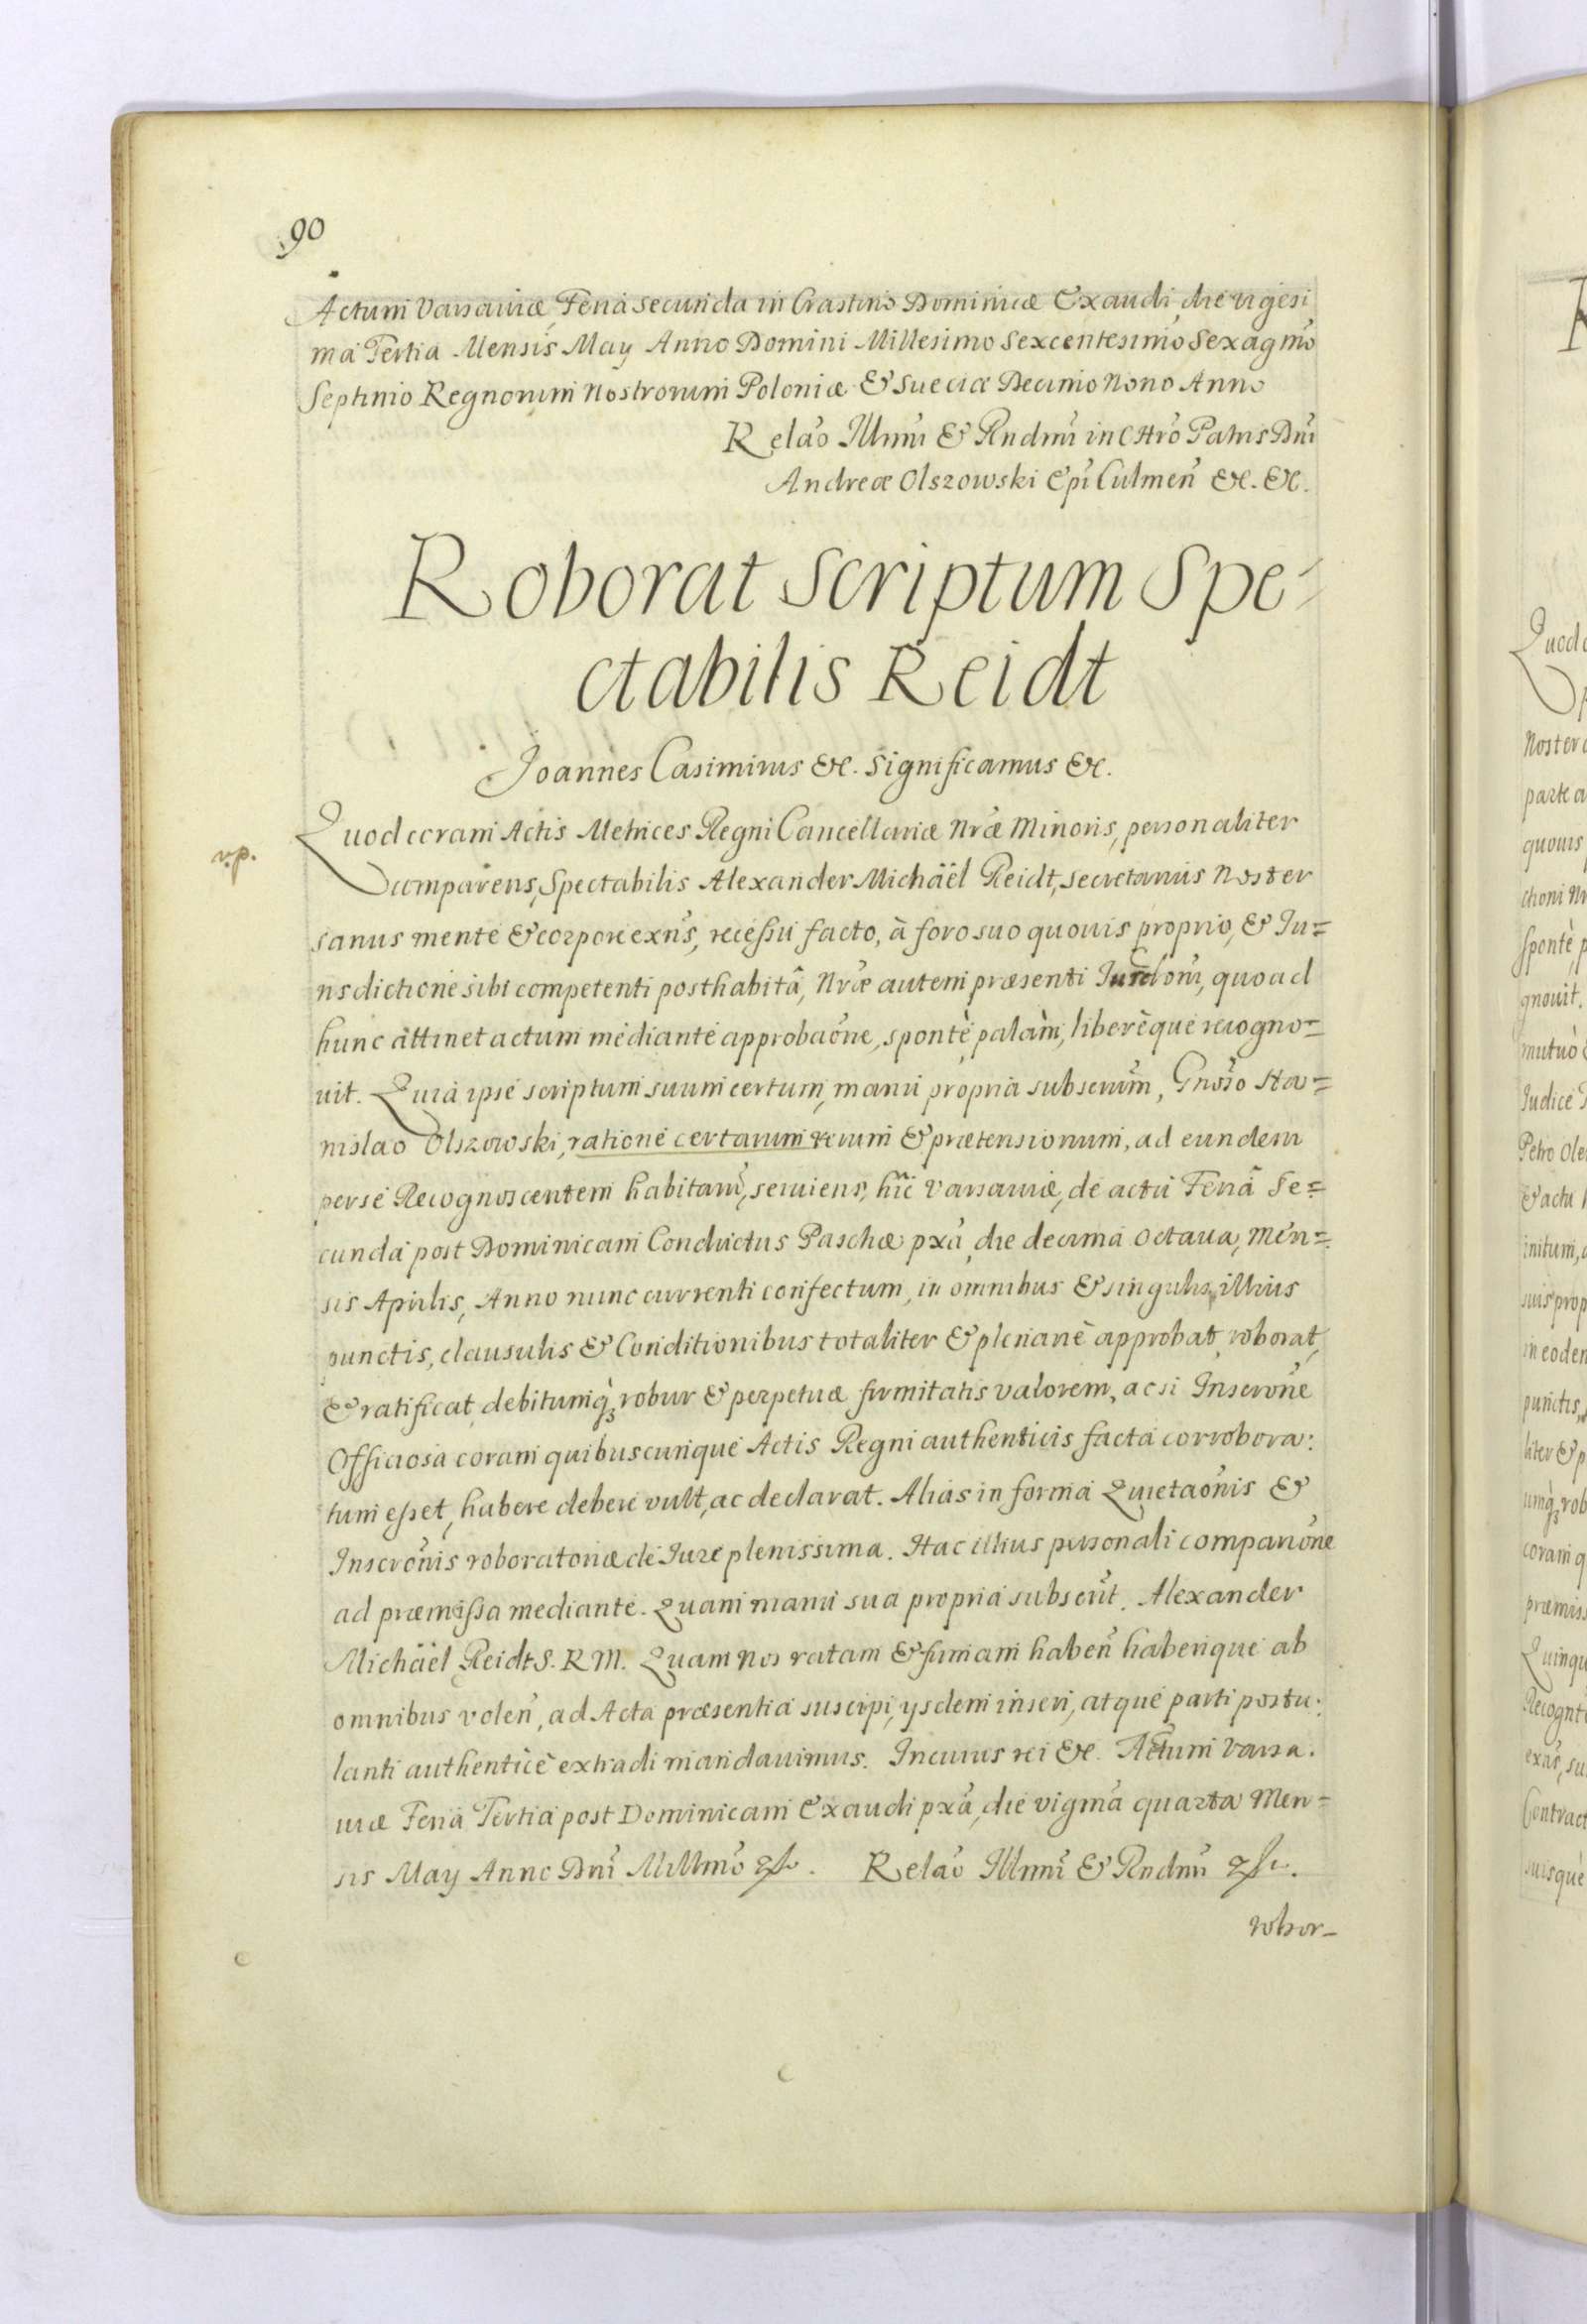 90
Actum Varsaviæ, Feriâ secunda in Crastino Dominicæ Exaudi, die vigesi
mâ Tertia Mensis May Anno Domini Millesimo Sexcentesimo Sexagmo
Septimo Regnorum Nostrorum Poloniæ & Sueciæ Decimo Nono Anno
Relao Illmi & Rndmi in Chro Patris Dni
Andreæ Olszowski Epi Culmen &c. &c.
Roborat scriptum Spe-
ctabilis Reidt
Joannes Casimirus &c. Significamus &c.
v.p.
Quod coram Actis Metrices Regni Cancellariæ Nræ Minoris, personaliter
comparens, Spectabilis Alexander Michäël Reidt, Secretarius Noster
sanus mente & corpore exns, recessu facto, à foro suo quovis proprio, & Ju=
risdictione sibi competenti posthabitâ, Nræ autem præsenti Jurdoni, quo ad
hunc attinet actum mediante approbaone, spontè palàm, liberèque recogno=
vit. Quia ipse scriptum suum certum, manu propria subscrum, Gnoso Sta=
nislao Olszowski, ratione certarum rerum & prætensionum, ad eundem
per se Recognoscentem habitarum, serviens, hîc Varsaviæ, de actu Feriâ Se=
cunda post Dominicam Conductus Paschæ pxa, die decima octava, Men=
sis Aprilis, Anno nunc currenti confectum, in omnibus & singulis, illius
punctis, clausulis & Conditionibus totaliter & plenariè approbat, roborat,
& ratificat, debitumq; robur & perpetuæ firmitatis valorem, ac si Inscrone
Officiosa coram quibuscunque Actis Regni authenticis facta corrobora:
tum esset, habere debere vult, ac declarat. Alias in forma Quietaonis &
Inscronis roboratoriæ de Jure plenissima. Hac illius personali comparione
ad præmissa mediante. Quam manu sua propria subscrit. Alexander
Michäël Reidt S. R. M. Quam Nos ratam & firmam haben haberique ab
omnibus volen, ad Acta præsentia suscipi, ysdem inseri, atque parti postu:
lanti authenticè extradi mandavimus. In cuius rei &c. Actum Varsa.
viæ Feriâ Tertia post Dominicam Exaudi pxa, die vigma quarta Men=
sis May Anno Dni Millmo &c. Relao Illmi & Rndmi &c.
robor-